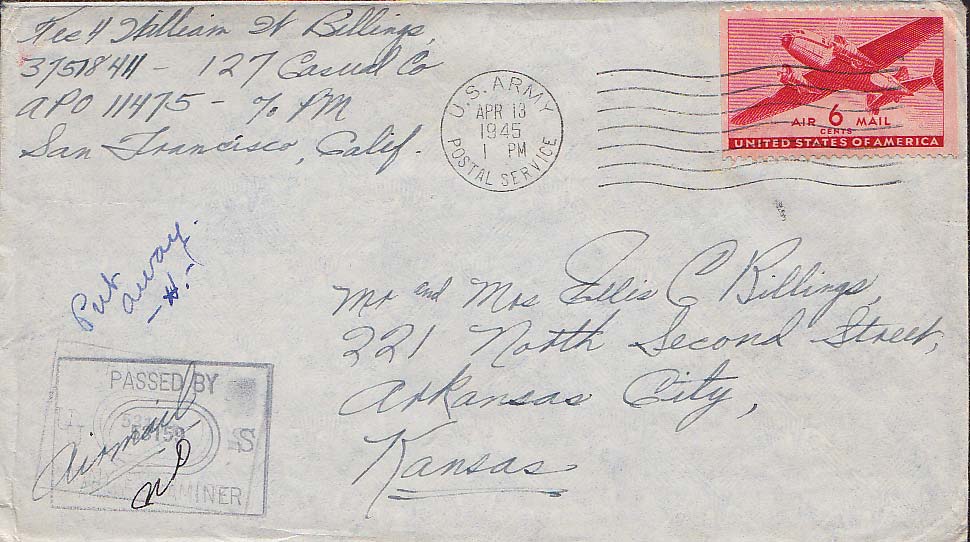 Tec 4 William W Billings,
37518411 - 127 Casual Co
APO 11475 - % PM
San Francisco, Calif.
U.S. ARMY
APR 13
1945
1 PM
POSTAL SERVICE
AIR 6 MAIL
CENTS
UNITED STATES OF AMERICA
Put
away.
Mr and Mrs Ellis C Billings,
221 North Second Street,
Arkansas City,
Kansas
PASSED BY
U. S
Airmail
EXAMINER